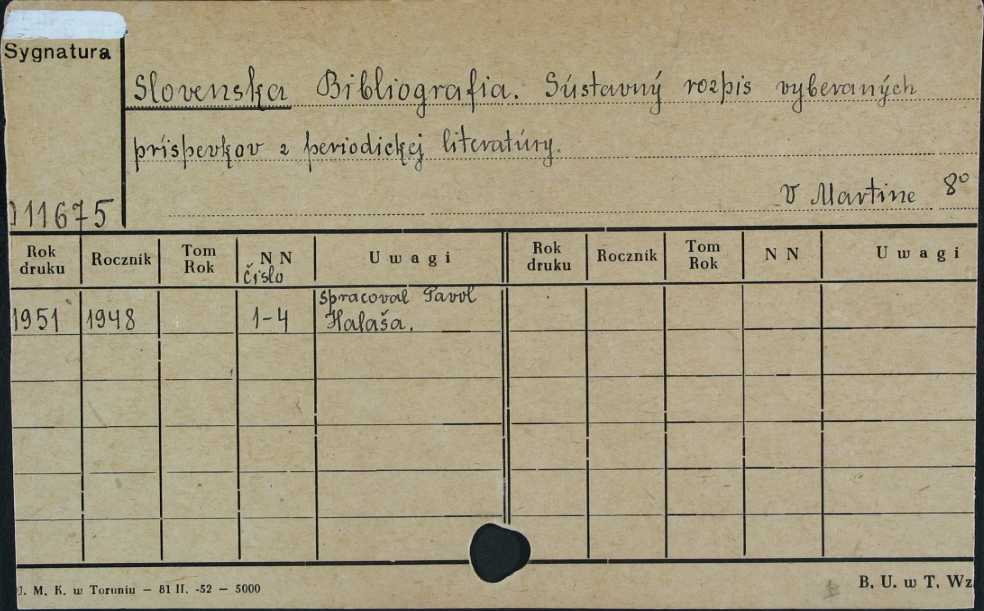 Sygnatura
Slovenska Bibliografia. Sústavný rozpis vyberaných
príspevkov z periodickej literatúry.
V Martine 8°
011675
Rok druku Rocznik Tom Rok NN číslo Uwagi Rok druku Rocznik Tom Rok NN Uwagi
1951 1948 1-4 Spracoval Pavol
Halaša.
U. M. K. w Toruniu — 81 II. -52 — 5000 B. U. w T. Wz